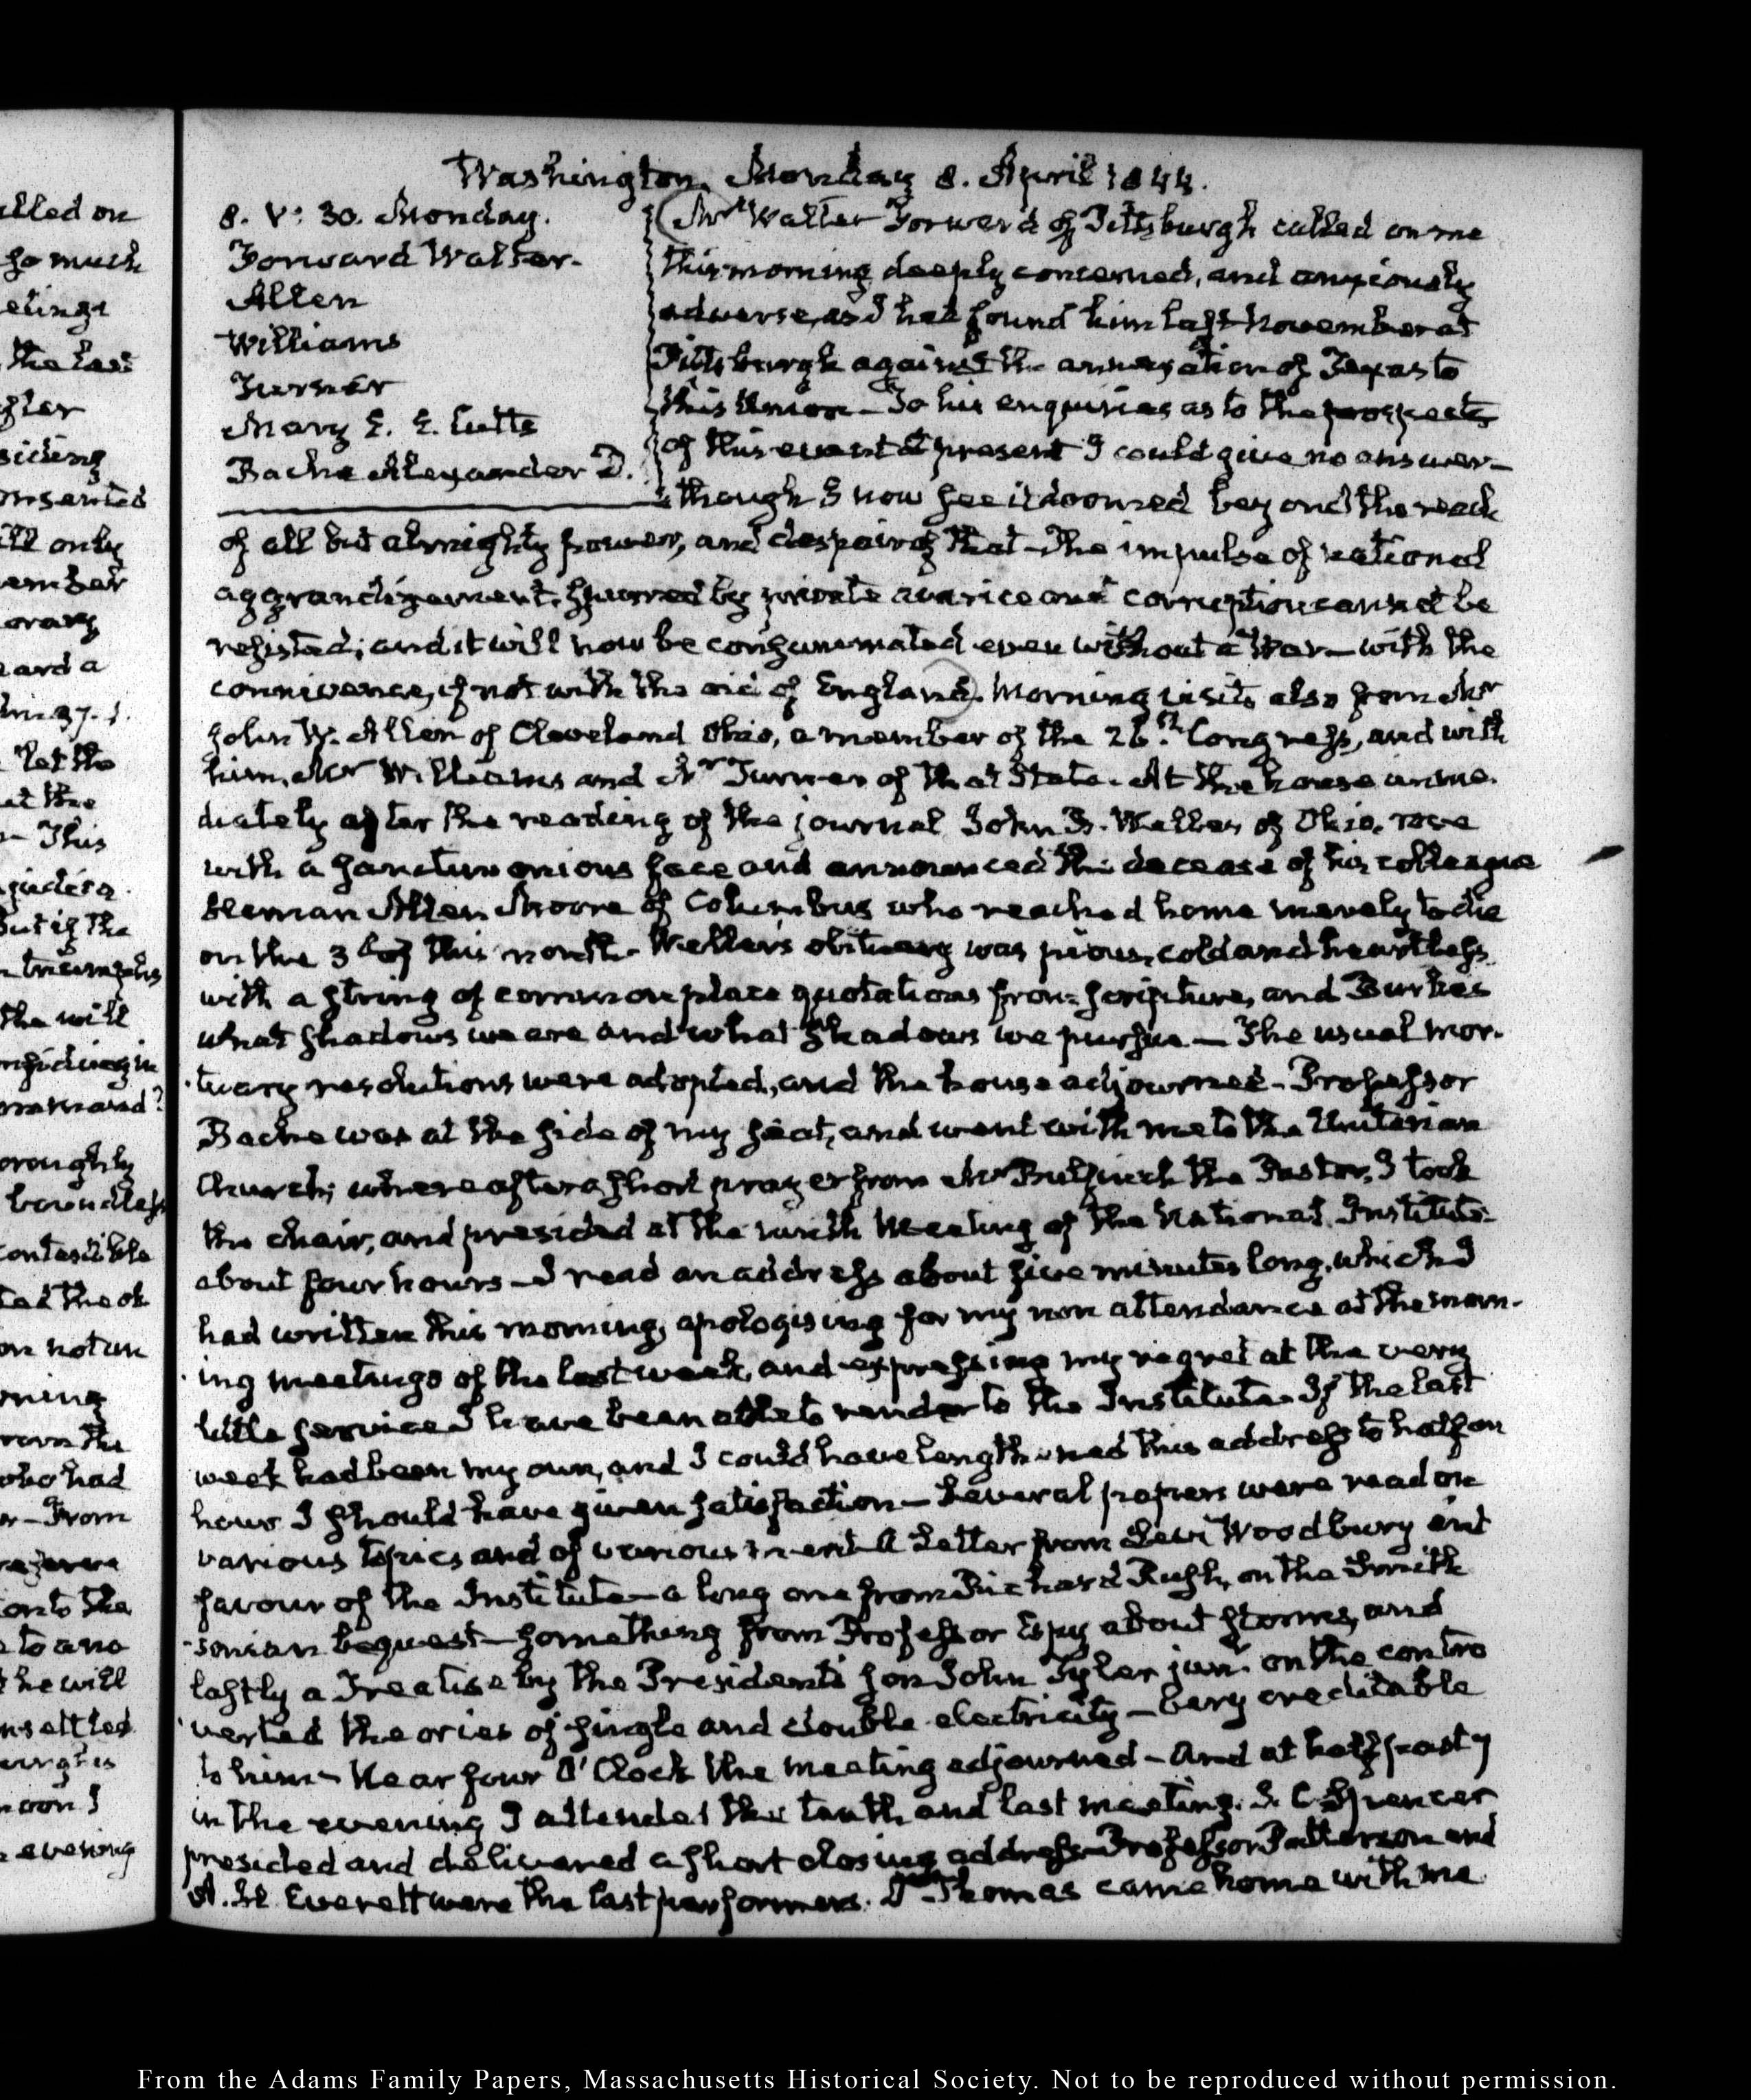 alled on
so much
elings
the last
siding
ill only
ember
orary
and a
let the
at the
- This
But if the
triumphs
the will
oroughly
boundless
contestible
ted the ob
on not un
rning
who had
r - From
on to the
to and
he will
nsettled
noon I
evening
Washington, Monday 8. April 1844.
8. V: 30. Monday.
Forward Walter.
Allen
Williams
Turner
Mary E. E. Cutts
Bache Alexander D.
Mr Walter Forward of Pittsburgh called on me
this morning, deeply concerned, and anxiously
adverse, as I had found him last November at
Pittsburgh against the annexation of Texas to
this Union - To his enquiries as to the prospects
of this event at present I could give no answer -
though I now see it doomed beyond the reach
of all but almighty power, and despair of that - The impulse of national
aggrandizement, spurred by private avarice and corruption cannot be
resisted; and it will now be consummated even without a War - with the
connivance, if not with the aid of England. Morning visits also from Mr
John W. Allen of Cleveland Ohio, a member of the 26th Congress, and with
him, Mr Williams and Mr Turner of that State. At the house imme-
diately after the reading of the journal John B. Weller, of Ohio, rose
with a sanctimonious face and announced the decease of his colleague
Heman Allen Moore of Columbus who reached home merely to die
on the 3d of this month. Weller's obituary was pious, cold and heartless
with a string of common place quotations from scripture, and Burkes
what shadows we are and what shadows we pursue - The usual mor-
tuary resolutions were adopted, and the house adjourned - Professor
Bache was at the side of my seat, and went with me to the Unitarian
Church; where after a short prayer from Mr Bulfinch the Pastor, I took
the chair, and presided at the ninth Meeting of the National Institute
about four hours - I read an address about five minutes long, which I
had written this morning, apologising for my non attendance at the morn-
ing meetings of the last week, and expressing my regret at the very
little service I have been able to render to the Institute. If the last
week had been my own, and I could have lengthened this address to half an
hour I should have given satisfaction - Several papers were read on
various topics and of various merit - A Letter from Levi Woodbury in
favour of the Institute - a long one from Richard Rush, on the Smith-
sonian bequest - something from Professor Espy about storms, and
lastly a Treatise by the President's son John Tyler junr. on the contro-
verted theories of single and double electricity - Very creditable
to him - Near four O'Clock the meeting adjourned - And at half past 7
in the evening I attended the tenth and last meeting. J. C. Spencer
presided and delivered a short closing address - Professor Patterson and
A. H. Everett were the last performers. Dr Thomas came home with me
From the Adams Family Papers, Massachusetts Historical Society. Not to be reproduced without permission.